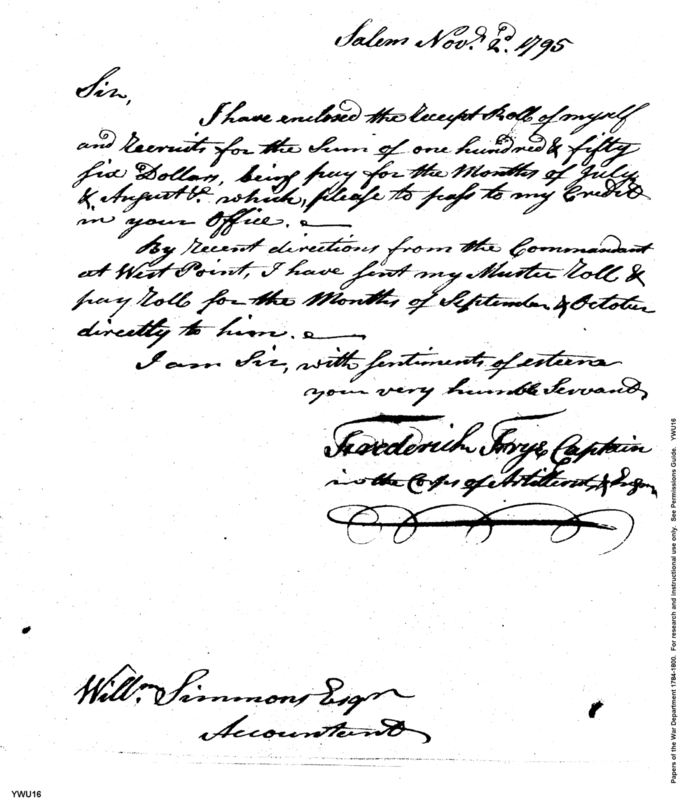 Salem Novr. 2d. 1795
Sir,
I have enclosed the receipt Roll of myself
and recruits for the Sum of one hundred & fifty
six Dollars, being pay for the Months of July
& August &c. which, please to pass to my Credit
in your Office.
By recent directions from the Commandant
at West Point, I have sent my Muster Roll &
pay Roll for the Months of September & October
directly to him.
I am Sir, with sentiments of esteem
your very humble Servant
Frederick Frye Captain
in the Corps of Artillerist & Engrs
Willm. Simmons Esqr
Accountant
YWU16
Papers of the War Department 1784-1800. For research and instructional use only. See Permissions Guide. YWU16